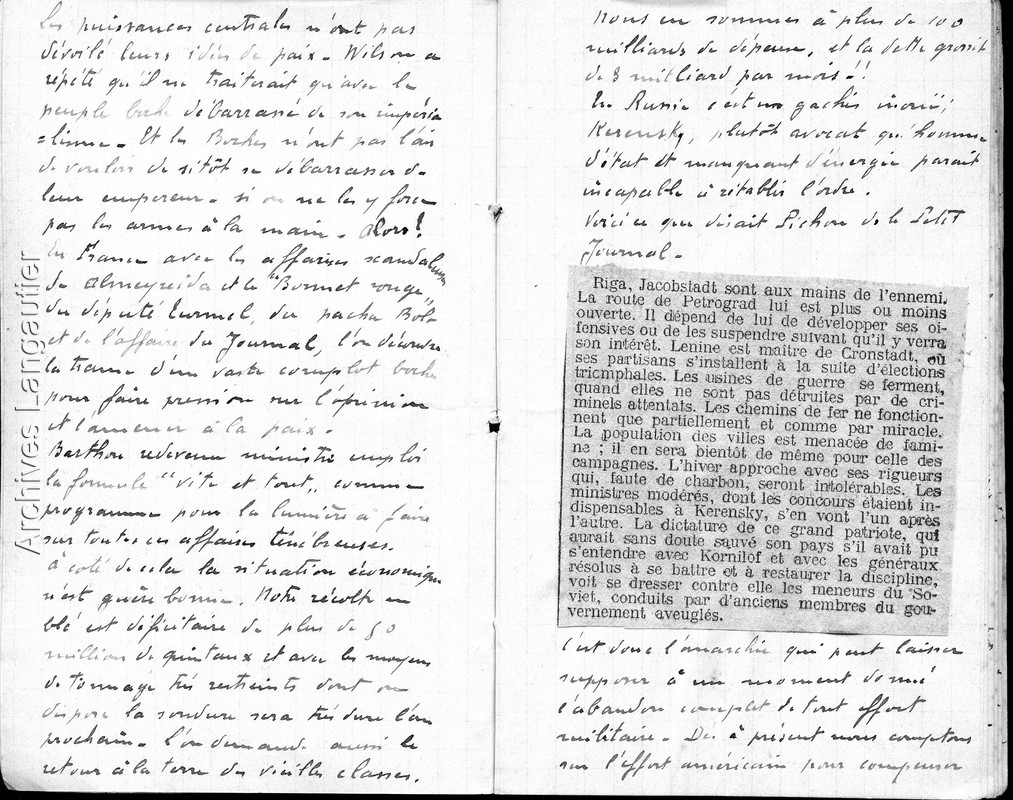 Les puissances centrales n'ont pas
dévoilé leurs idées de paix - Wilson a
répété qu'il ne traiterait qu'avec le
peuple boche débarrassé de son impéria
=lisme - Et les Boches n'ont pas l'air
de vouloir de sitôt se débarrasser de
leur empereur - si on ne les y force
pas les armes à la main - Alors!
En France avec les affaires scandaleuses
de Almeyreida et le "Bonnet rouge",
du député Turmel, du pacha Bolo
et de l'affaire du Journal, l'on découvre
la trame d'un vaste complot boche
pour faire pression sur l'opinion
et l'amener à la paix -
Barthou redevenu ministre emploi
la formule "vite et tout" comme
programme pour la lumière a faire
sur toutes ces affaires ténébreuses.
à coté de cela la situation économique
n'est guère bonne. Notre récolte en
blé est déficitaire de plus de 50
millions de quintaux et avec les moyens
de tonnage très restreints dont on
dispose la soudure sera très dure l'an
prochain - l'on demande aussi le
retour à la terre des vieilles classes.
Nous en sommes à plus de 100
milliards de dépense, et la dette grossit
de 3 milliard par mois!!
En Russie c'est un gachis inouï;
Kerensky, plutôt avocat qu'homme
d'état et manquant d'énergie parait
incapable à rétablir l'ordre.
Voici ce que disait Pichon de le Petit
Journal -
Riga, Jacobstadt sont aux mains de l'ennemi.
La route de Petrograd lui est plus ou moins
ouverte. Il dépend de lui de développer ses of-
fensives ou de les suspendre suivant qu'il y verra
son intérêt. Lenine est maître de Cronstadt, où
ses partisans s'installent à la suite d'élections
triomphales. Les usines de guerre se ferment,
quand elles ne sont pas détruites par de cri-
minels attentats. Les chemins de fer ne fonction-
nent que partiellement et comme par miracle.
La population des villes est menacée de fami-
ne ; il en sera bientôt de même pour celle des
campagnes. L'hiver approche avec ses rigueurs
qui, faute de charbon, seront intolérables. Les
ministres modérés, dont les concours étaient in-
dispensables à Kerensky, s'en vont l'un après
l'autre. La dictature de ce grand patriote, qui
aurait sans doute sauvé son pays s'il avait pu
s'entendre avec Kornilof et avec les généraux
résolus à se battre et à restaurer la discipline,
voit se dresser contre elle les meneurs du So-
viet, conduits par d'anciens membres du gou-
vernement aveuglés.
C'est donc l'anarchie qui peut laisser
supposer à un moment donné
l'abandon complet de tout effort
militaire - Dès à présent nous comptons
sur l'effort américain pour compenser
Archives Langautier